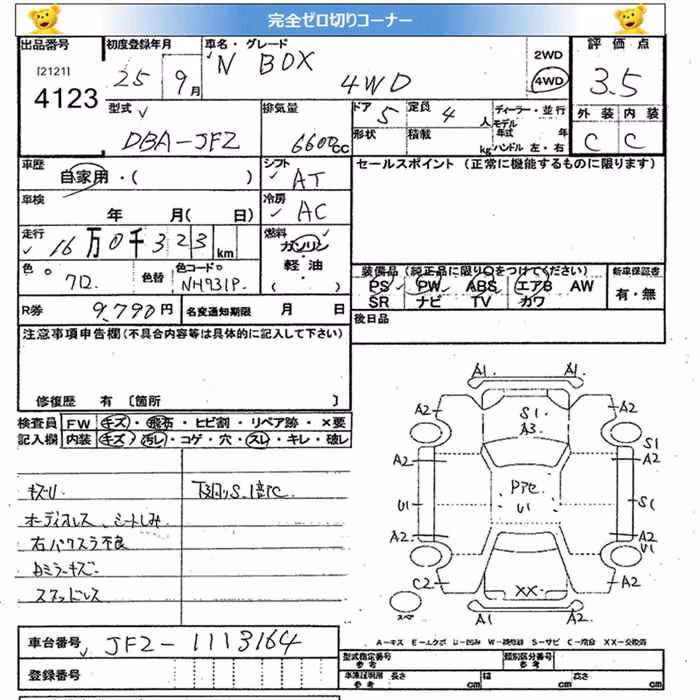 完全ゼロ切りコーナー
出品番号
[2121]
4123
初度登録年月
25年 9月
車名・グレード
N BOX
4WD
2WD
4WD
評価点
3.5
外装 内装
C C
型式
DBA-JF2
排気量
660cc
ドア 5
定員 4人
形状
積載 kg
ディーラー・並行
モデル年式 年
ハンドル 左・右
車歴
自家用・( )
シフト
AT
セールスポイント (正常に機能するものに限ります)
車検
年 月( 日)
冷房
AC
走行
16万0千323km
燃料
ガソリン
軽油
( )
色
712
色替
色コードNo
NH731P
装備品(純正品に限り○をつけてください)
PS PW ABS エアB AW
SR ナビ TV カワ
新車保証書
有・無
R券
9,790円
名変通知期限 月 日
後日品
注意事項申告欄(不具合内容等は具体的に記入して下さい)
修復歴 有 〔箇所 〕
検査員
記入欄
FW キズ・飛石・ヒビ割・リペア跡・×要
内装 キズ・汚レ・コゲ・穴・スレ・キレ・破レ
キズU
オーディオレス シートしみ
右パワスラ不良
Dミラーキズ
スマッドレス
下廻りS
A1 A1
A2 A2
S1
A3
S1
A2 A2
U1
アセ
U1
S1
A2 A2
U1
C2
XX
A2
スペア
A1 A2
A-キズ E-エクボ U-凹み W-補修跡 S-サビ C-腐食 XX-交換済
車台番号
JF2-1113164
登録番号
型式指定番号
参考
類別区分番号
参考
車庫証明用
参考
長さ cm 幅 cm 高さ cm